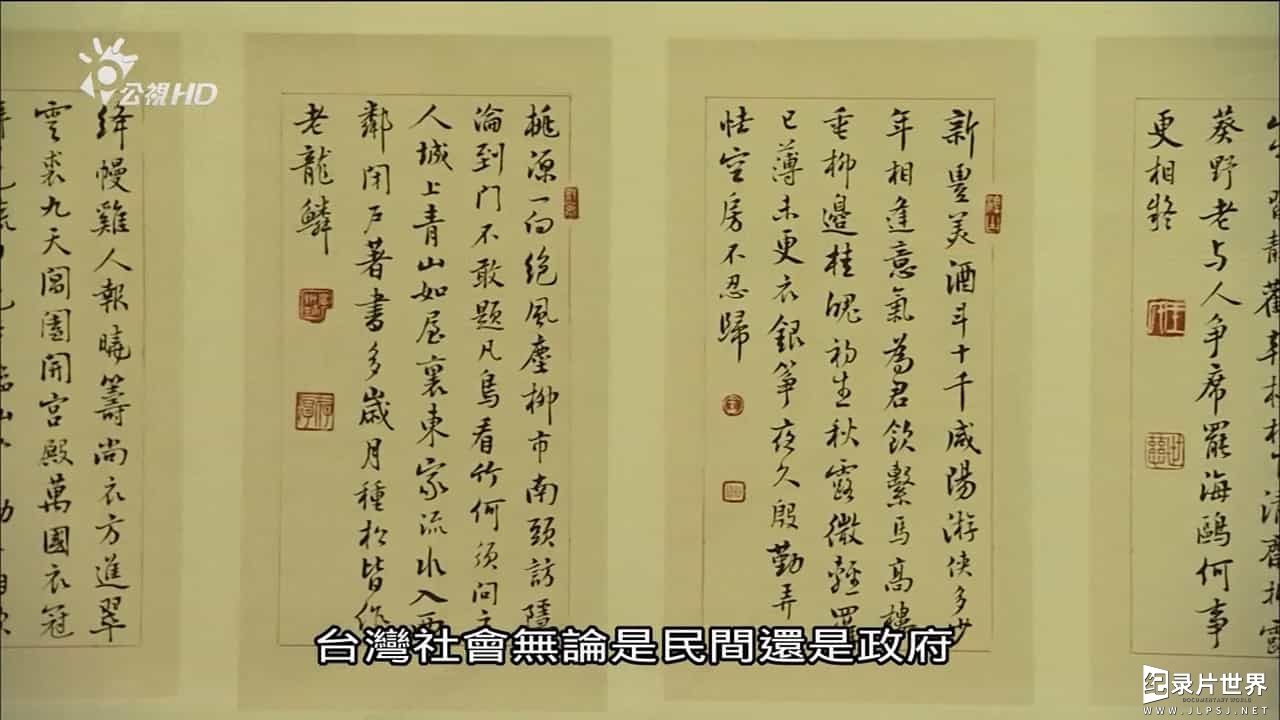 公視HD
葵野老与人争席罷海鷗何事
更相疑
新豐美酒斗十千咸陽游俠多少
年相逢意氣為君飲繫馬高樓
垂柳邊桂魄初生秋露微輕羅
已薄未更衣銀箏夜久殷勤弄
怯空房不忍歸
桃源一向絕風塵柳市南頭訪隱
淪到門不敢題凡鳥看竹何須問主
人城上青山如屋裏東家流水入西
鄰閉戶著書多歲月種松皆作
老龍鱗
絳幘雞人報曉籌尚衣方進翠
雲裘九天閶闔開宮殿萬國衣冠
台灣社會無論是民間還是政府
纪录片世界
DOCUMENTARY WORLD
WWW.JLPSJ.NET